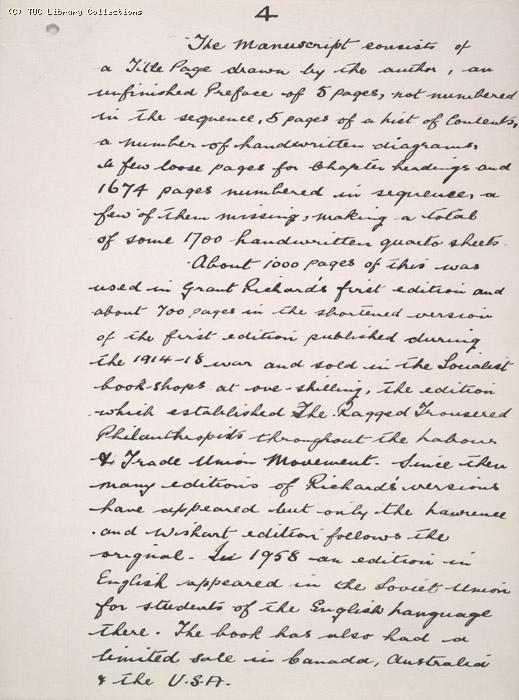 (C) TUC Library Collections
4
The Manuscript consists of
a Title Page drawn by the author, an
unfinished Preface of 5 pages, not numbered
in the sequence, 5 pages of a List of Contents,
a number of handwritten diagrams,
A few loose pages for Chapter headings and
1674 pages numbered in sequence, a
few of them missing, making a total
of some 1700 handwritten quarto sheets.
About 1000 pages of this was
used in Grant Richard's first edition and
about 700 pages in the shortened version
of the first edition published during
the 1914-18 war and sold in the Socialist
book-shops at one-shilling, the edition
which established The Ragged Trousered
Philanthropists throughout the Labour
& Trade Union Movement. Since then
many editions of Richard's versions
have appeared but only the Lawrence
and Wishart edition follows the
original. In 1958 an edition in
English appeared in the Soviet Union
for students of the English Language
there. The book has also had a
limited sale in Canada, Australia
& the U.S.A.